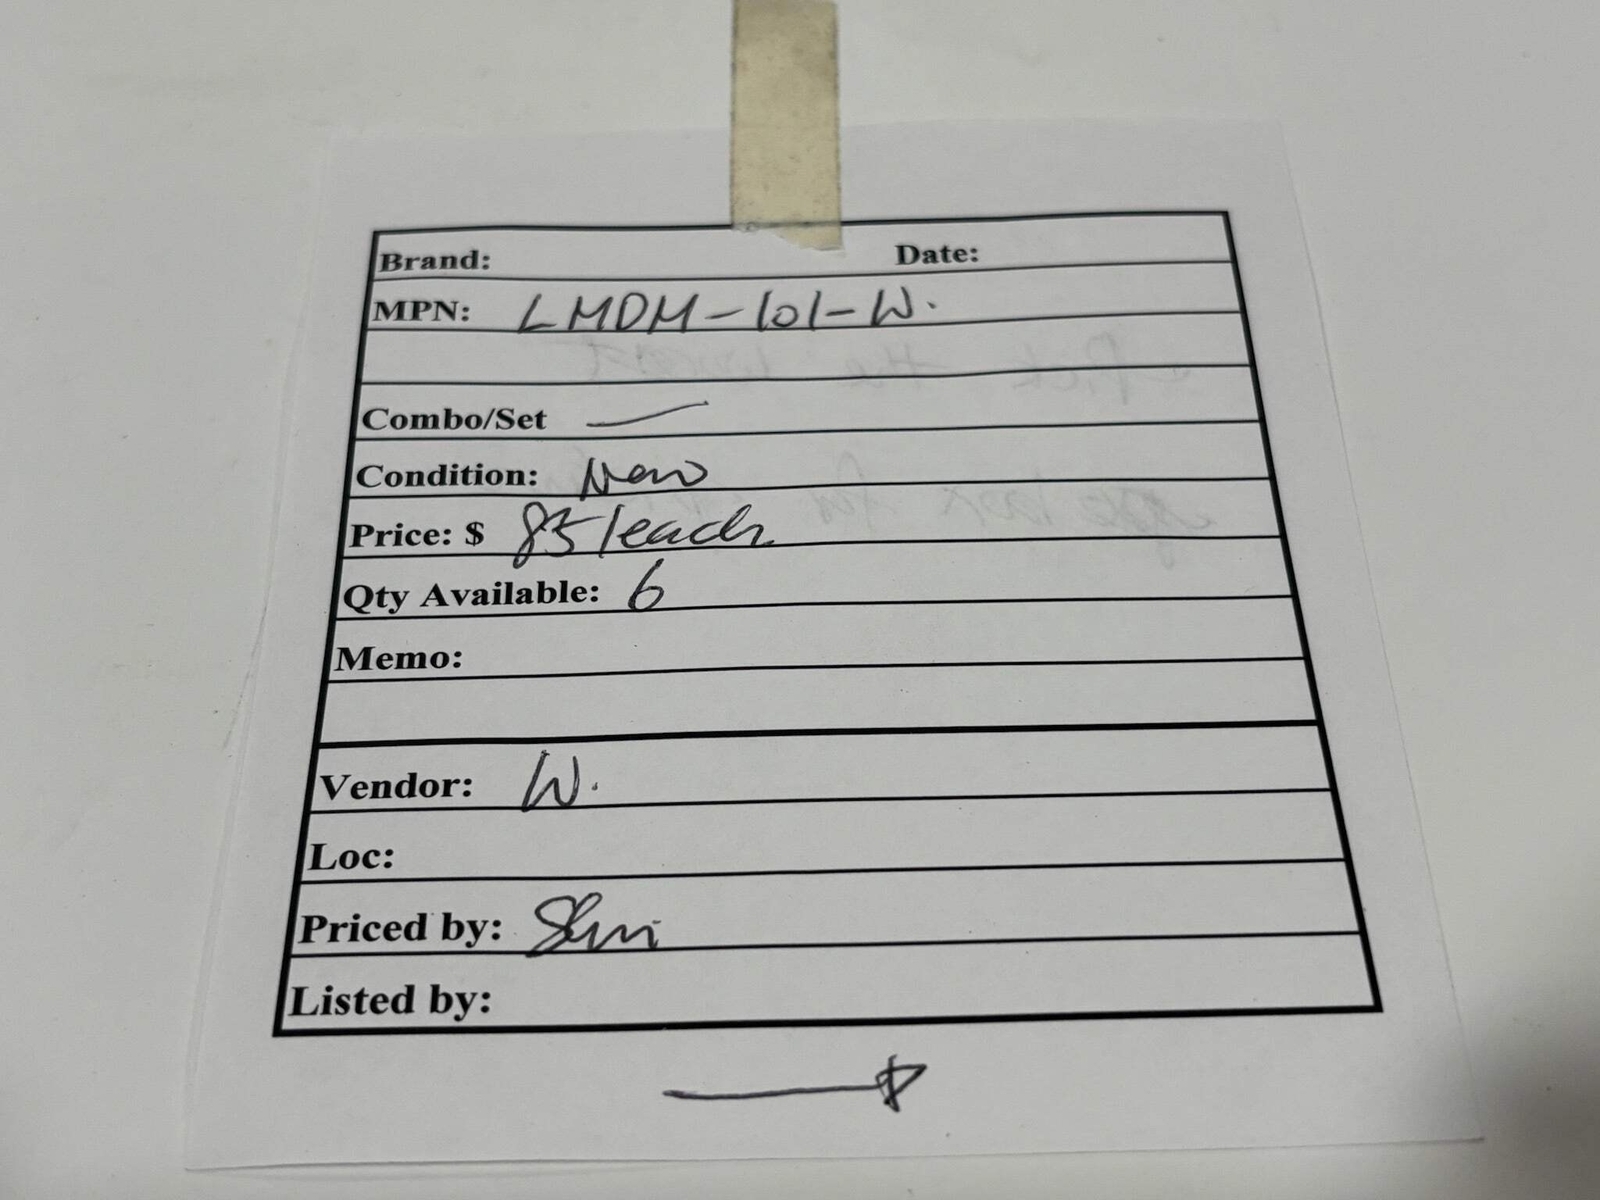 Brand: Date:
MPN: LMDM-101-W.
Combo/Set —
Condition: New
Price: $ 85/each
Qty Available: 6
Memo:
Vendor: W.
Loc:
Priced by:
Listed by: